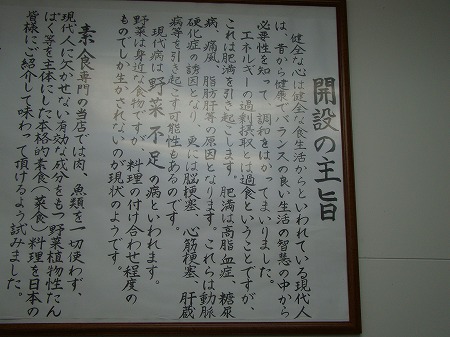 開設の主旨
健全な心は健全な食生活からといわれている現代人
は、昔から健康でバランスの良い生活の智慧の中から
必要性を知って、調和をはかってまいりました。
エネルギーの過剰摂取とは過食ということですが、
これは肥満を引き起こします。肥満は高脂血症、糖尿
病、痛風、脂肪肝等の原因となります。これらは動脈
硬化症の誘因となり、更には脳梗塞、心筋梗塞、肝臓
病等を引き起こす可能性もあるのです。
現代病は野菜不足の病といわれます。
野菜は身近な食物ですが、料理の付け合わせ程度の
ものでしか生かされないのが現状のようです。
素食専門の当店では肉、魚類を一切使わず、
現代人に欠かせない有効な成分をもつ野菜植物性たん
ぱく等を主体にした本格的素食(菜食)料理を日本の
皆様にご紹介して味わって頂けるよう試みました。